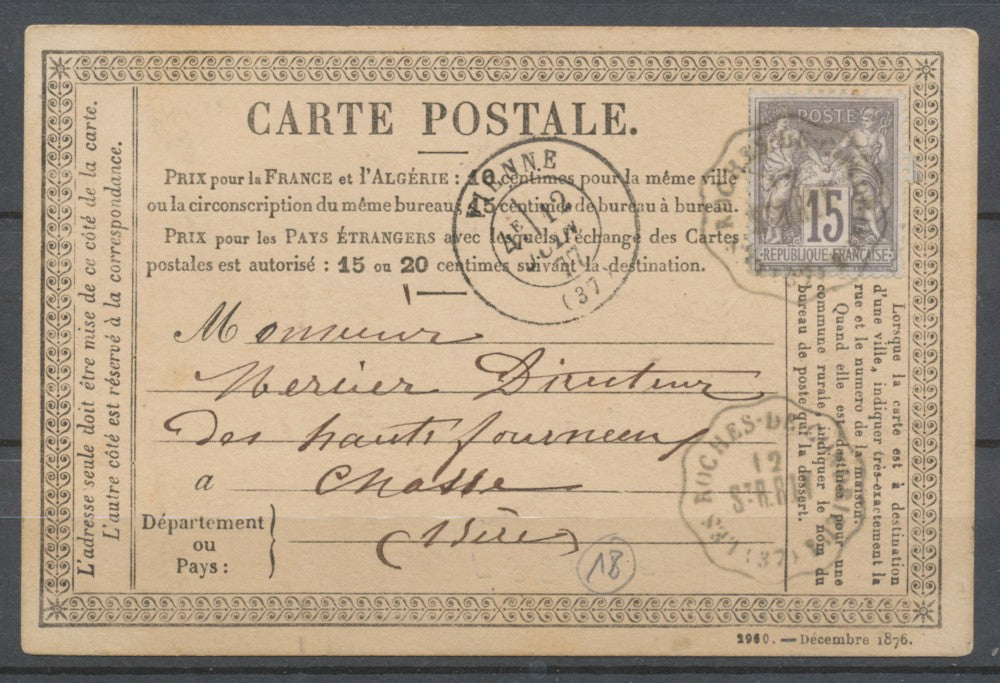 CARTE POSTALE.
PRIX pour la FRANCE et l'ALGÉRIE : 10 centimes pour la même ville
ou la circonscription du même bureau; 15 centimes de bureau à bureau.
PRIX pour les PAYS ÉTRANGERS avec lesquels l'échange des Cartes
postales est autorisé : 15 ou 20 centimes suivant la destination.
POSTE
15
RÉPUBLIQUE FRANÇAISE
VIENNE
4E
12
JUIN
77
(37)
Monsieur
Mercier Directeur
des hauts fourneaux
a Chasse
Isère
Département
ou
Pays :
18
LES ROCHES-DE-
12
(37)
L'adresse seule doit être mise de ce côté de la carte.
L'autre côté est réservé à la correspondance.
Lorsque la carte est à destination
d'une ville, indiquer très-exactement la
rue et le numero de la maison.
Quand elle est destinée pour une
commune rurale, indiquer le nom du
bureau de poste qui la dessert.
2960. — Décembre 1876.